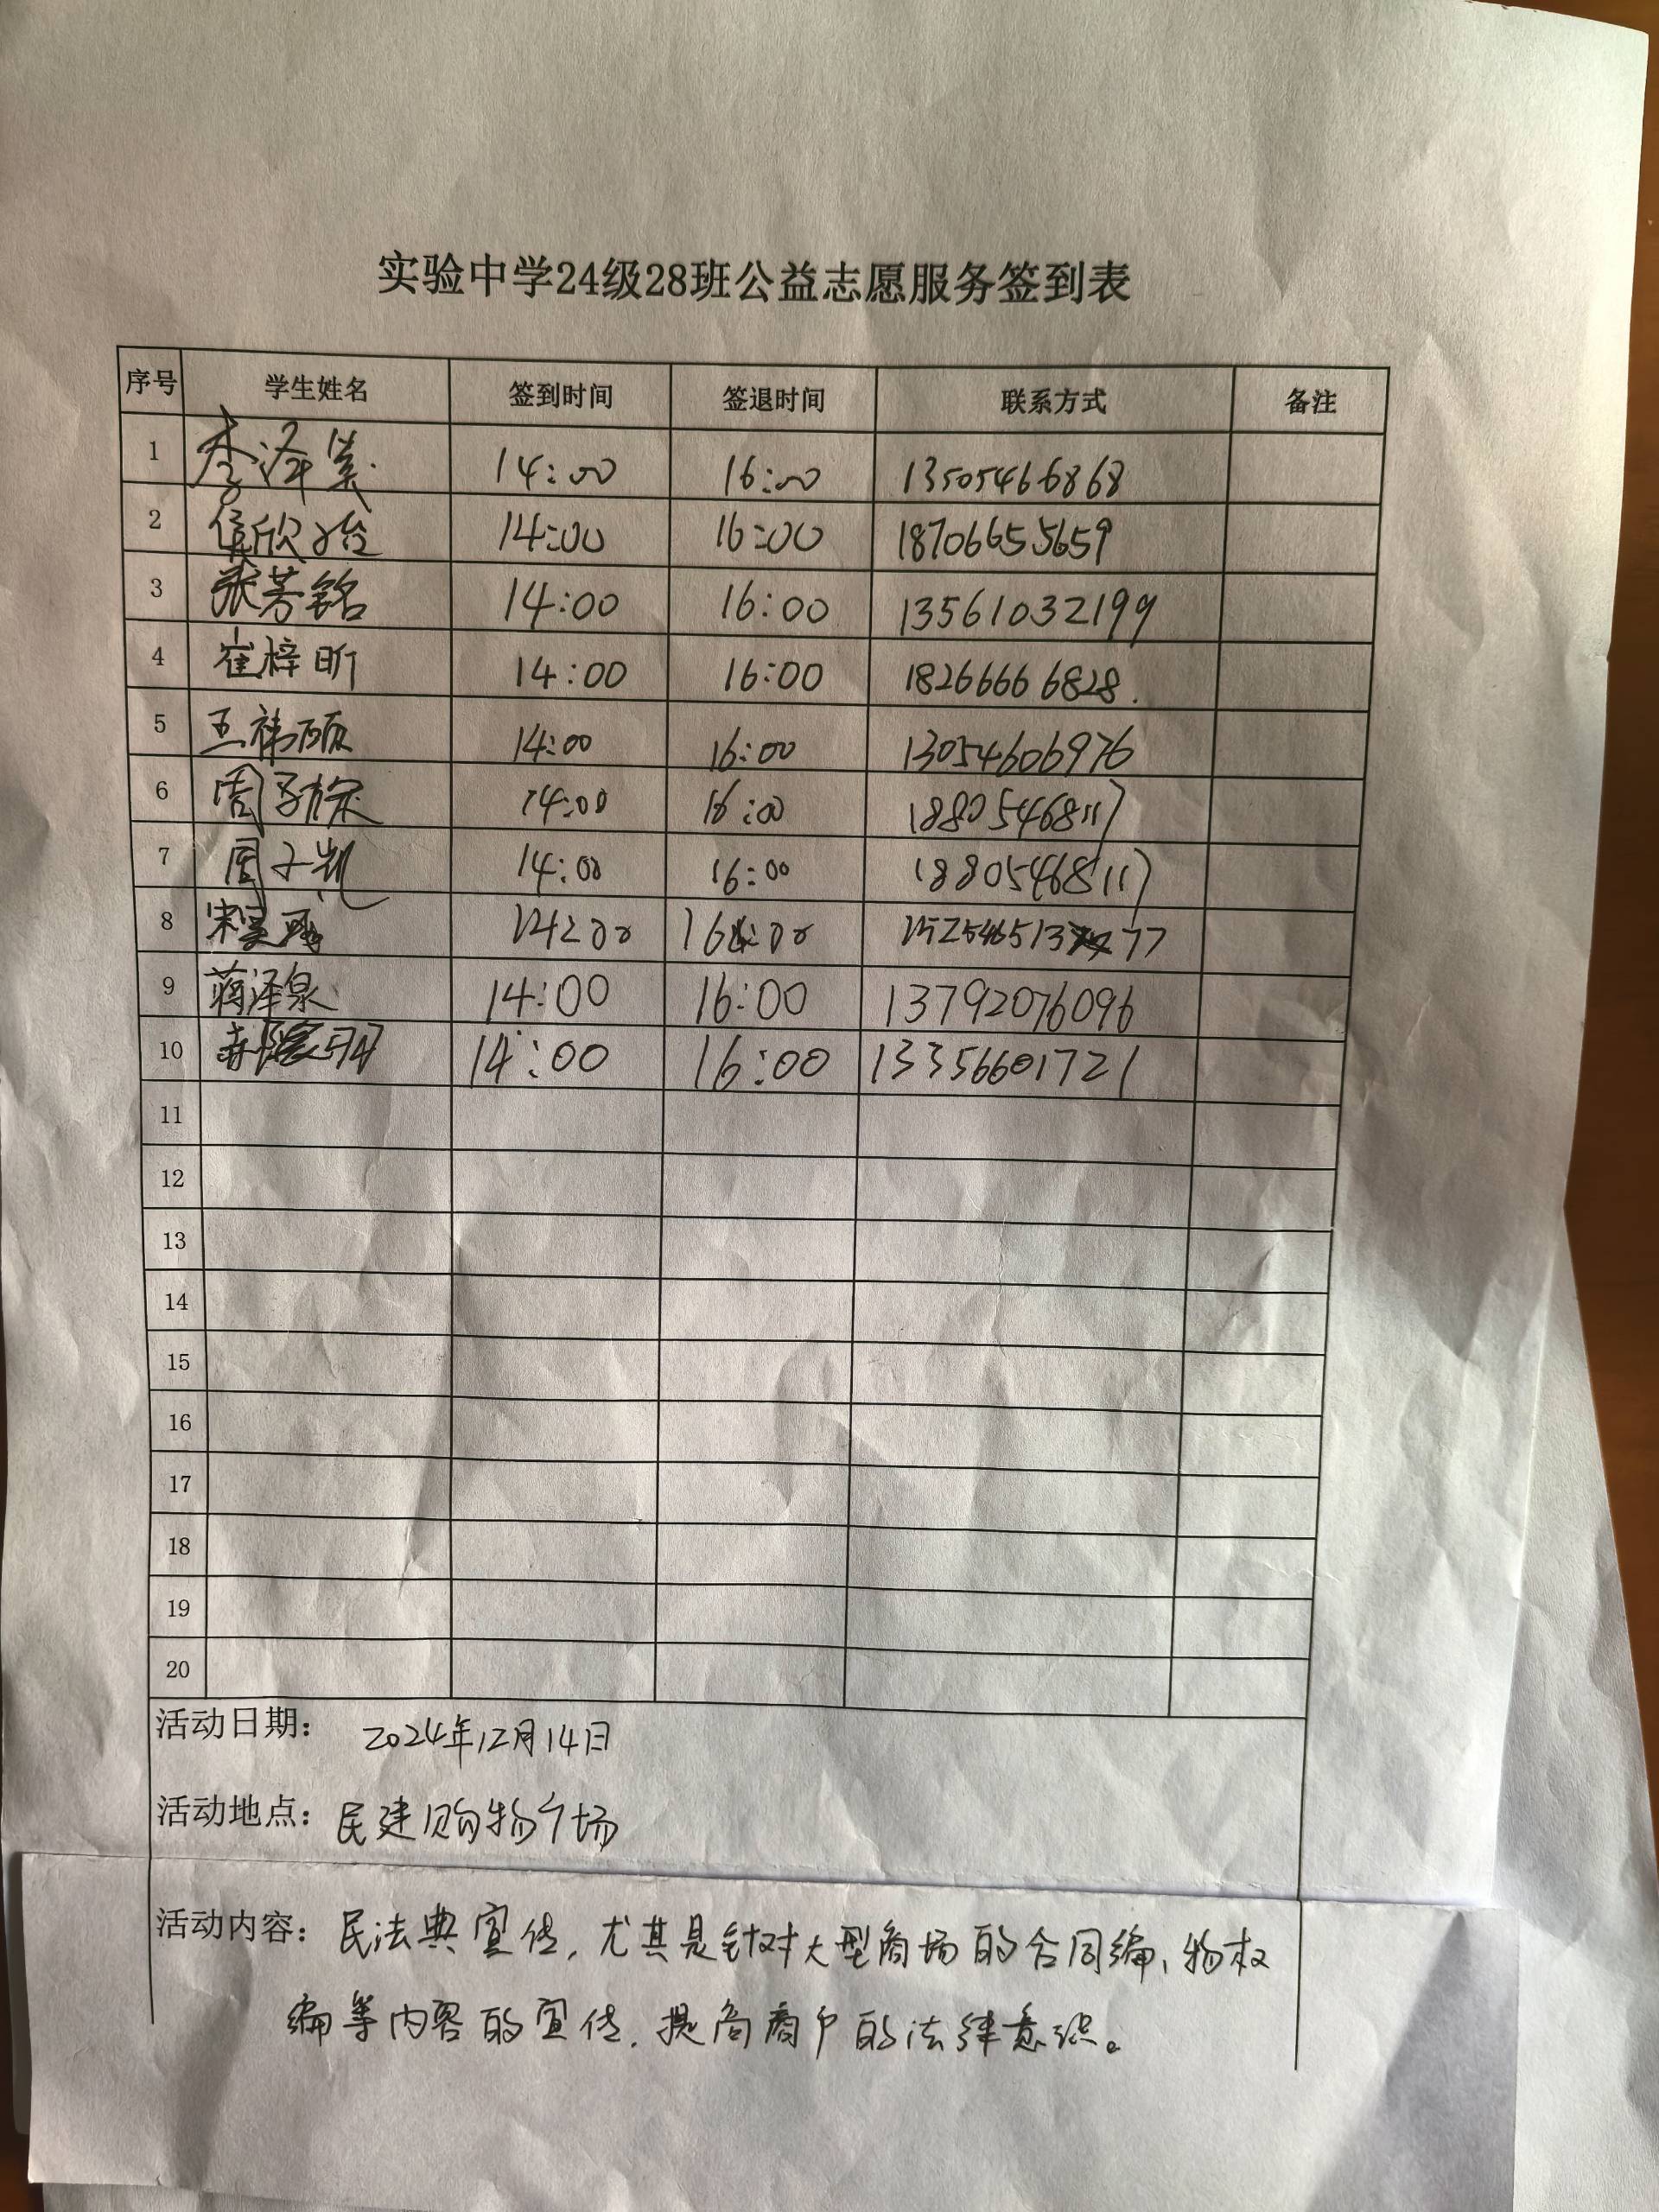 实验中学24级28班公益志愿服务签到表
序号 学生姓名 签到时间 签退时间 联系方式 备注
1 李泽 14:00 16:00 13505466868
2 侯欣怡 14:00 16:00 18706655659
3 张芳铭 14:00 16:00 13561032199
4 崔梓昕 14:00 16:00 18266666828.
5 王祎硕 14:00 16:00 13054606976
6 周子 14:00 16:00 18805468117
7 周子凯 14:00 16:00 18805468117
8 宋昊 14:00 16:00
9 蒋泽泉 14:00 16:00 13792076096
10 14:00 16:00 13356601721
11
12
13
14
15
16
17
18
19
20
活动日期: 2024年12月14日
活动地点: 民建购物广场
活动内容: 民法典宣传,尤其是针对大型商场的合同编、物权
编等内容的宣传,提高商户的法律意识。